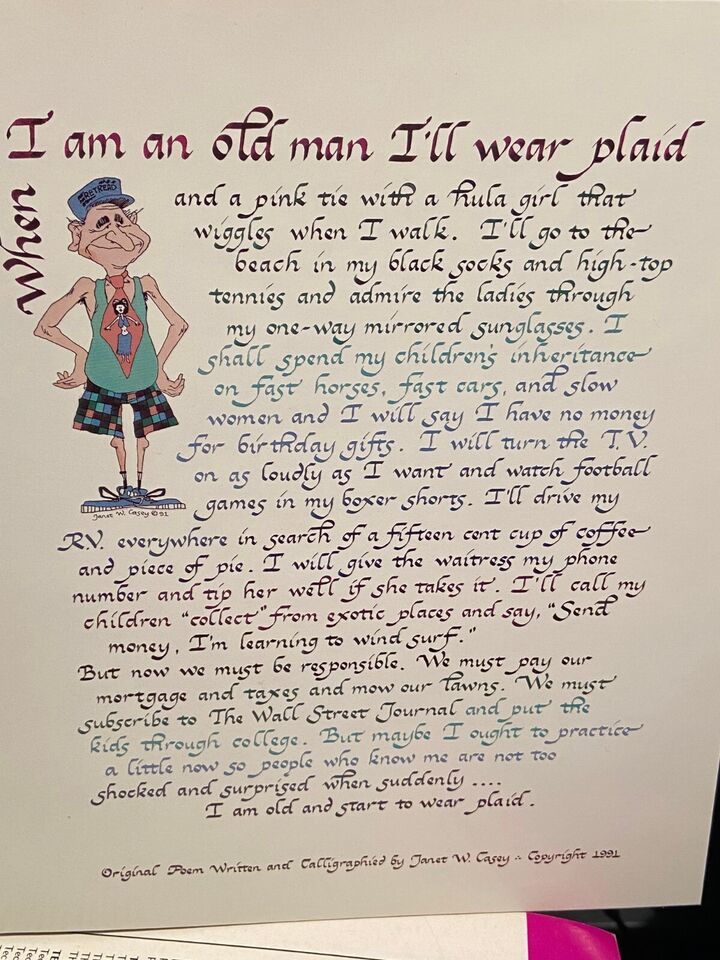 When
I am an old man I'll wear plaid
RETREAD
and a pink tie with a hula girl that
wiggles when I walk. I'll go to the
beach in my black socks and high-top
tennies and admire the ladies through
my one-way mirrored sunglasses. I
shall spend my children's inheritance
on fast horses, fast cars, and slow
women and I will say I have no money
for birthday gifts. I will turn the T.V.
on as loudly as I want and watch football
games in my boxer shorts. I'll drive my
Janet W. Casey © 91
R.V. everywhere in search of a fifteen cent cup of coffee
and piece of pie. I will give the waitress my phone
number and tip her well if she takes it. I'll call my
children "collect" from exotic places and say, "Send
money, I'm learning to wind surf."
But now we must be responsible. We must pay our
mortgage and taxes and mow our lawns. We must
subscribe to The Wall Street Journal and put the
kids through college. But maybe I ought to practice
a little now so people who know me are not too
shocked and surprised when suddenly ....
I am old and start to wear plaid.
Original Poem Written and Calligraphied by Janet W. Casey ∴ Copyright 1991